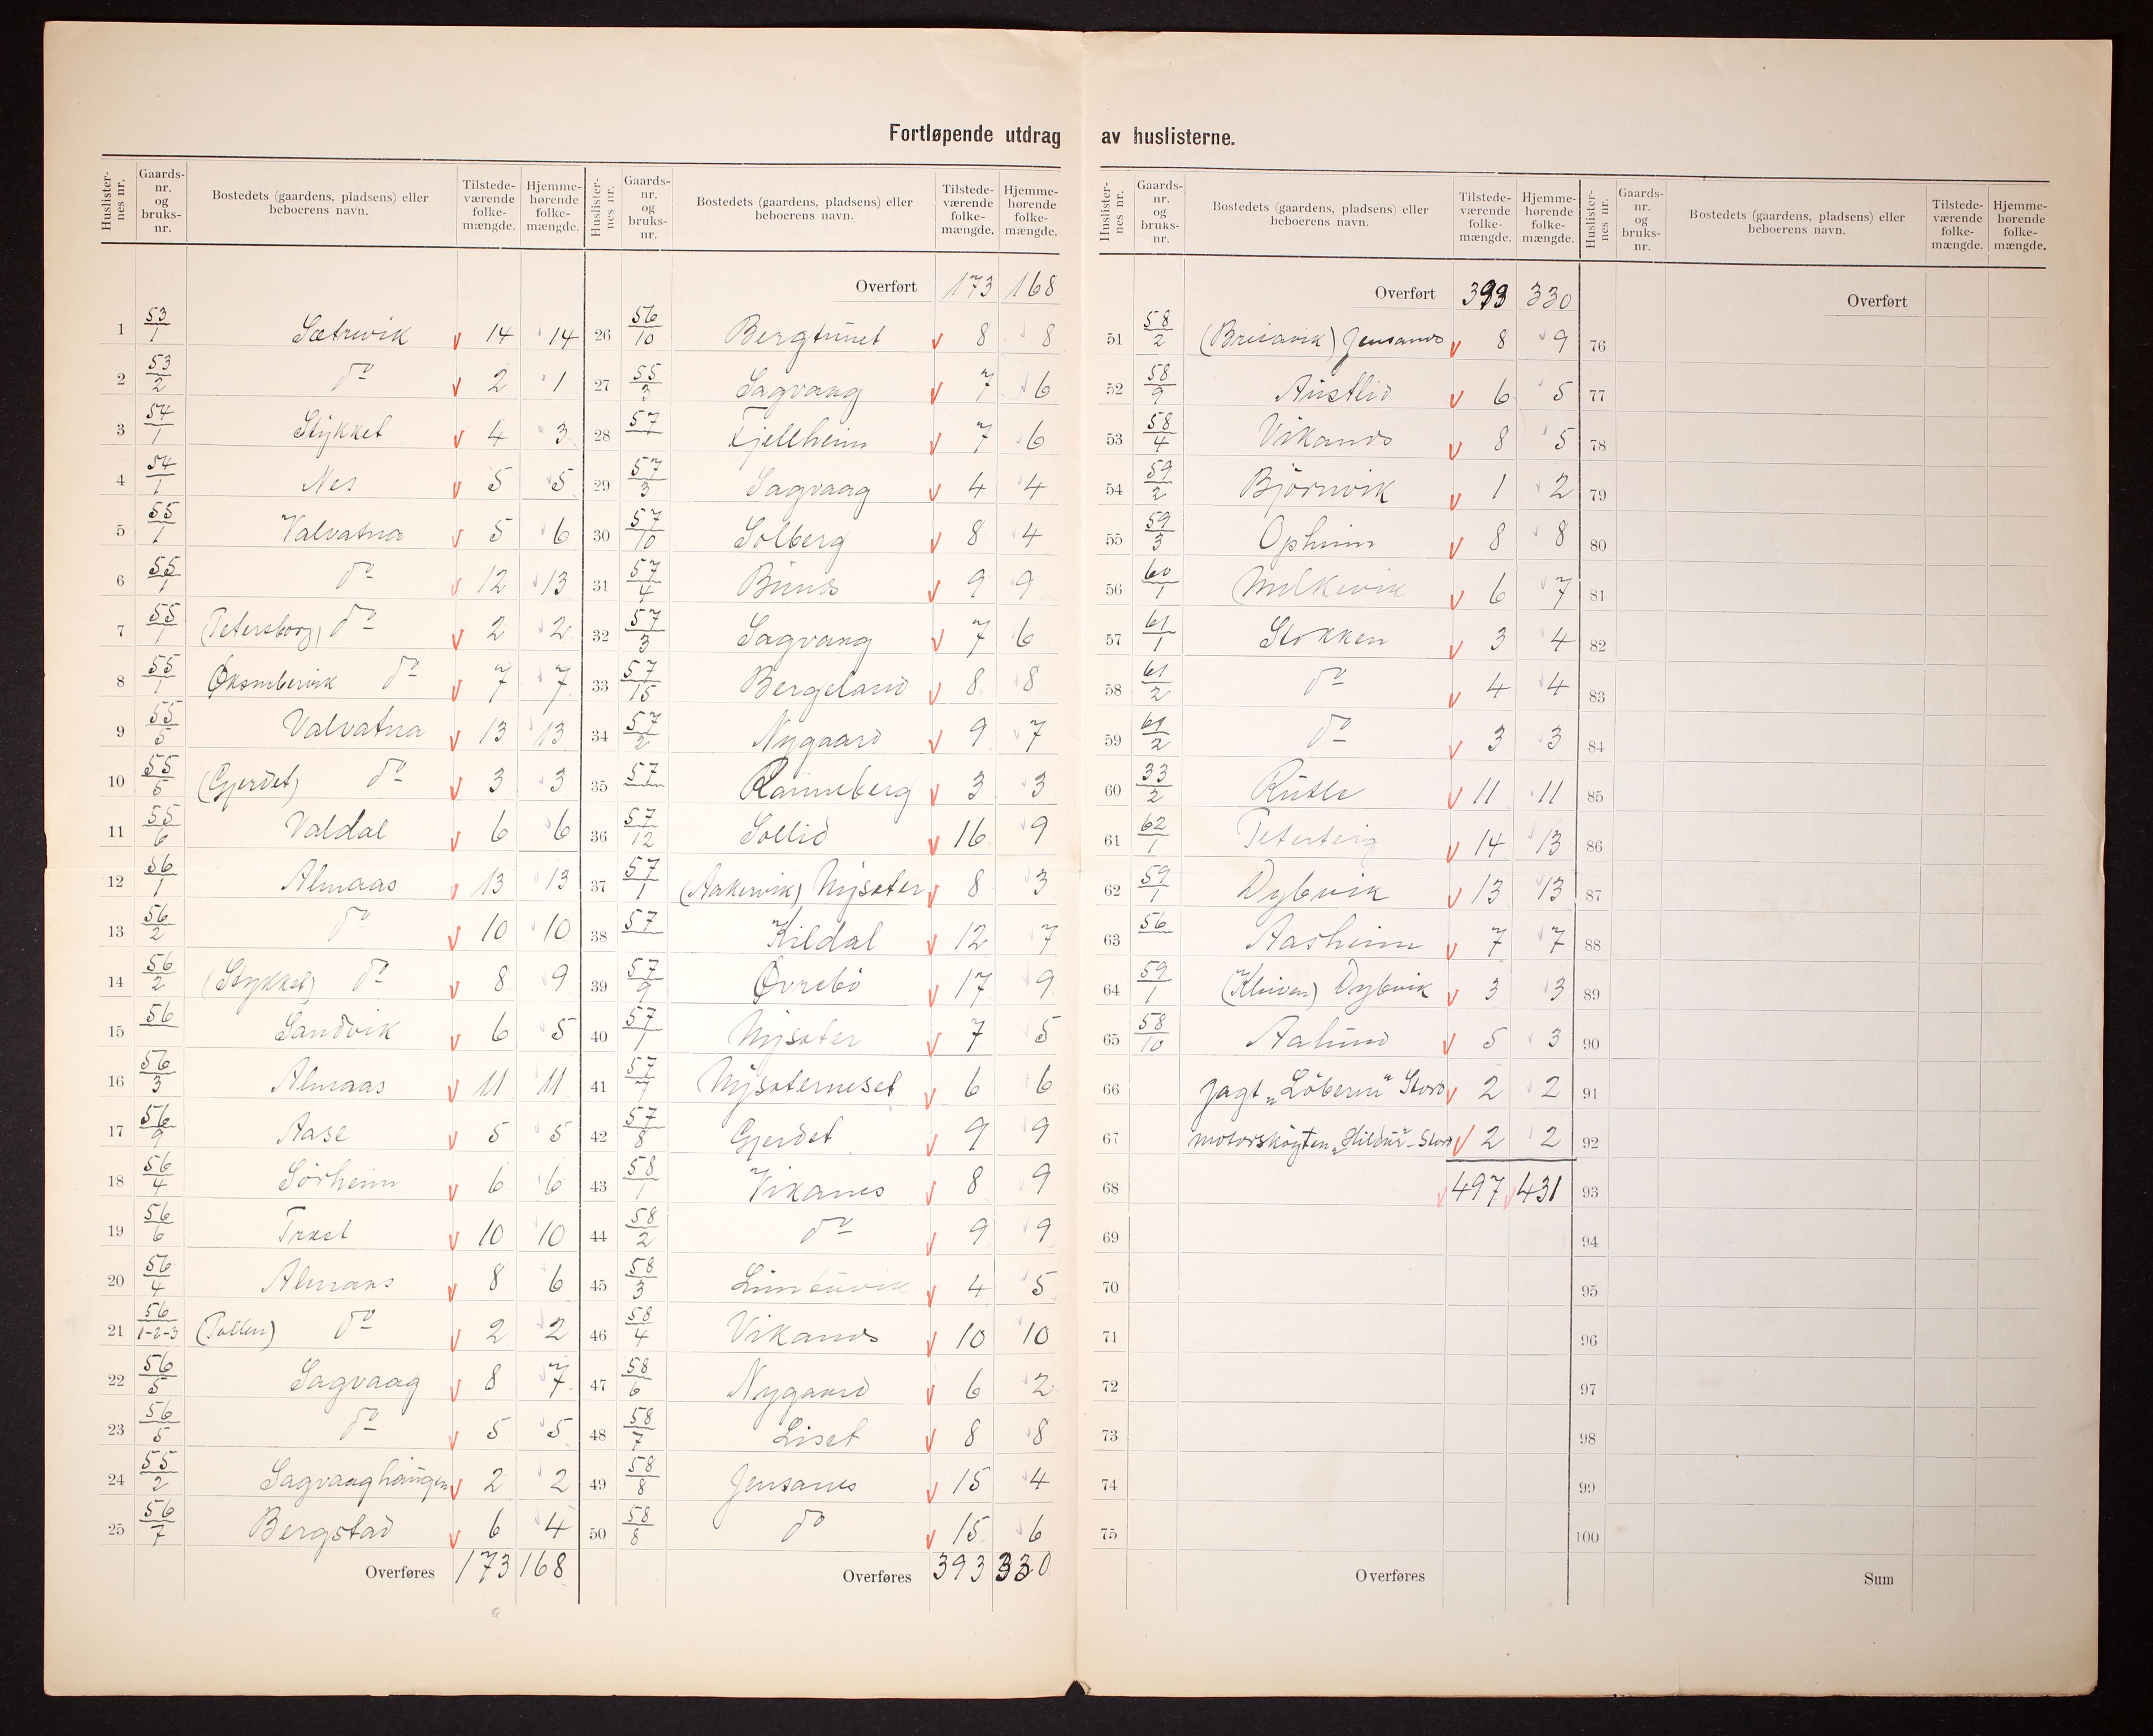 Fortløpende utdrag av huslisterne.
Huslisternes nr. | Gaardsnr. og bruksnr. | Bostedets (gaardens, pladsens) eller beboerens navn. | Tilstedeværende folkemængde. | Hjemmehørende folkemængde.
1 53/1 Sætrevik v 14 14
2 53/2 do v 2 1
3 54/1 Stykket v 4 3
4 54/1 Nes v 5 5
5 55/1 Valvatna v 5 6
6 55/1 do v 12 13
7 55/1 (Petersborg) do v 2 2
8 55/1 do v 7 7
9 55/5 Valvatna v 13 13
10 55/5 (Gjerdet) do v 3 3
11 55/6 Valdal v 6 6
12 56/1 Almaas v 13 13
13 56/2 do v 10 10
14 56/2 (Stykket) do v 8 9
15 56 Sandvik v 6 5
16 56/3 Almaas v 11 11
17 56/9 Aase v 5 5
18 56/4 Sörheim v 6 6
19 56/6 Træet v 10 10
20 56/4 Almaas v 8 6
21 56/1-2-3 (Pollen) do v 2 2
22 56/5 Sagvaag v 8 7
23 56/5 do v 5 5
24 55/2 Sagvaaghaugen v 2 2
25 56/7 Bergstad v 6 4
Overføres 173 168
Huslisternes nr. | Gaardsnr. og bruksnr. | Bostedets (gaardens, pladsens) eller beboerens navn. | Tilstedeværende folkemængde. | Hjemmehørende folkemængde.
Overført 173 168
26 56/10 Bergtunet v 8 8
27 55/3 Sagvaag v 7 6
28 57 Fjellheim v 7 6
29 57/3 Sagvaag v 4 4
30 57/10 Solberg v 8 4
31 57/4 v 9 9
32 57/3 Sagvaag v 7 6
33 57/15 Bergeland v 8 8
34 57/2 Nygaard v 9 7
35 57 Ranneberg v 3 3
36 57/12 Sollid v 16 9
37 57/1 (Aakervik) Nysæter v 8 3
38 57 Kildal v 12 7
39 57/9 Øvrebö v 17 9
40 57/1 Nysæter v 7 5
41 57/7 Nysæterneset v 6 6
42 57/8 Gjerdet v 9 9
43 58/1 Vikanes v 8 9
44 58/2 do v 9 9
45 58/3 v 4 5
46 58/4 Vikanes v 10 10
47 58/6 Nygaard v 6 2
48 58/7 Liset v 8 8
49 58/8 Jensanes v 15 4
50 58/8 do v 15 6
Overføres 393 330
Huslisternes nr. | Gaardsnr. og bruksnr. | Bostedets (gaardens, pladsens) eller beboerens navn. | Tilstedeværende folkemængde. | Hjemmehørende folkemængde.
Overført 393 330
51 58/2 (Breiavik) Jensanes v 8 9
52 58/9 Austlid v 6 5
53 58/4 Vikanes v 8 5
54 59/2 Björnvik v 1 2
55 59/3 Opheim v 8 8
56 60/1 Melkevik v 6 7
57 61/1 Stokken v 3 4
58 61/2 do v 4 4
59 61/2 do v 3 3
60 33/2 Rutle v 11 11
61 62/1 Peterteig v 14 13
62 59/1 Dybvik v 13 13
63 56 Aasheim v 7 7
64 59/1 (Kleiven) Dybvik v 3 3
65 58/10 Aalund v 5 3
66 Jagt „Löberen" Stord v 2 2
67 motorskøyten „Hildur" - Stord v 2 2
68 v 497 v 431
69
70
71
72
73
74
75
Overføres
Huslisternes nr. | Gaardsnr. og bruksnr. | Bostedets (gaardens, pladsens) eller beboerens navn. | Tilstedeværende folkemængde. | Hjemmehørende folkemængde.
Overført
76
77
78
79
80
81
82
83
84
85
86
87
88
89
90
91
92
93
94
95
96
97
98
99
100
Sum